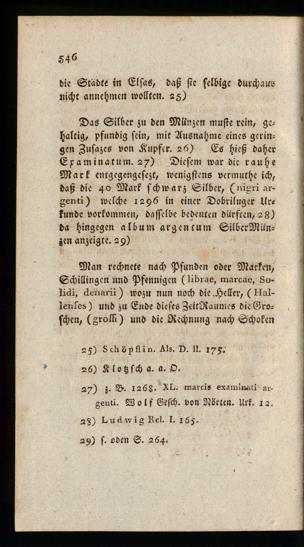 546
die Städte in Elsas, daß sie selbige durchaus
nicht annehmen wollten. 25)
Das Silber zu den Münzen muste rein, ge-
haltig, pfundig sein, mit Ausnahme eines gerin-
gen Zusazes von Kupfer. 26) Es hieß daher
Examinatum. 27) Diesem war die rauhe
Mark entgegengesezt, wenigstens vermuthe ich,
daß die 40 Mark schwarz Silber, (nigri ar-
genti) welche 1296 in einer Dobriluger Ur-
kunde vorkommen, dasselbe bedeuten dürften, 28)
da hingegen album argentum SilberMün-
zen anzeigte. 29)
Man rechnete nach Pfunden oder Marken,
Schillingen und Pfennigen (librae, marcae, So-
lidi, denarii) wozu nun noch die Heller, (Hal-
lenses) und zu Ende dieses ZeitRaumes die Gro-
schen, (grossi) und die Rechnung nach Schoken
25) Schöpflin. Als. D. II. 175.
26) Klotzsch a. a. O.
27) z. B. 1268. XL. marcis examinati ar-
genti. Wolf Gesch. von Nörten. Urk. 12.
28) Ludwig Rel. I. 165.
29) s. oben S. 264.